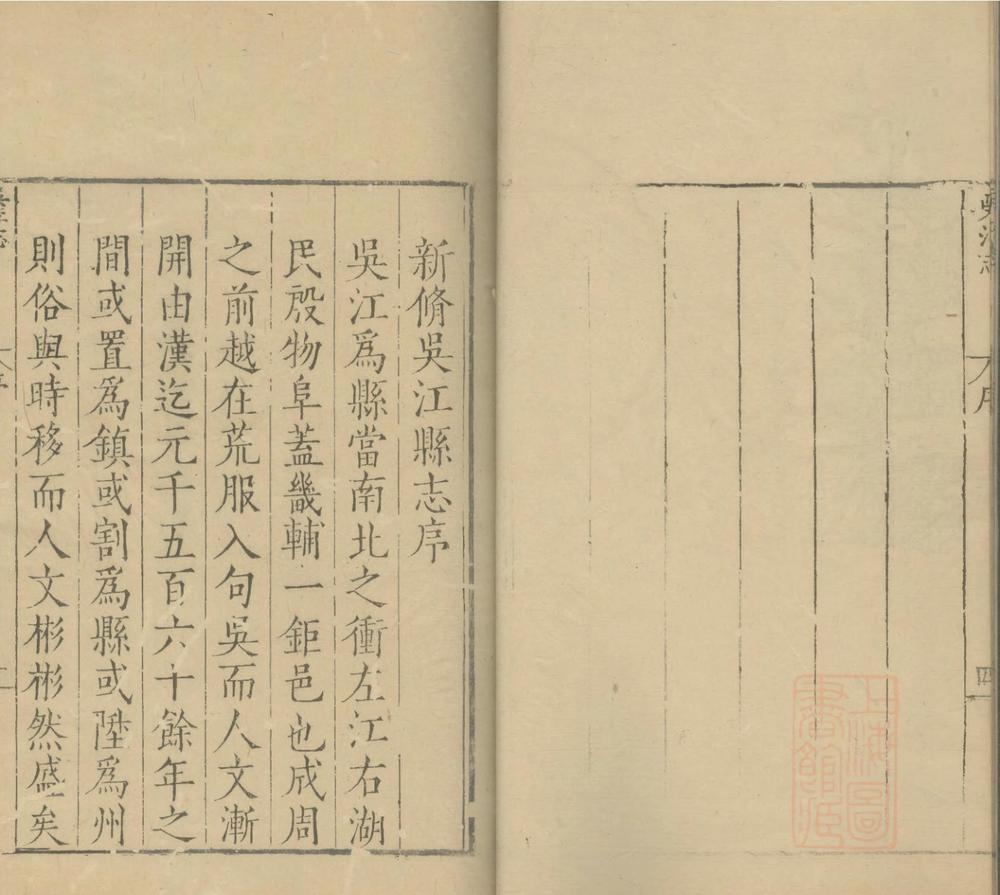 吳江志
大序
四
上海圖
書館藏
新脩吳江縣志序
吳江爲縣當南北之衝左江右湖
民殷物阜蓋畿輔一鉅邑也成周
之前越在荒服入句吳而人文漸
開由漢迄元千五百六十餘年之
間或置爲鎮或割爲縣或陞爲州
則俗與時移而人文彬彬然盛矣